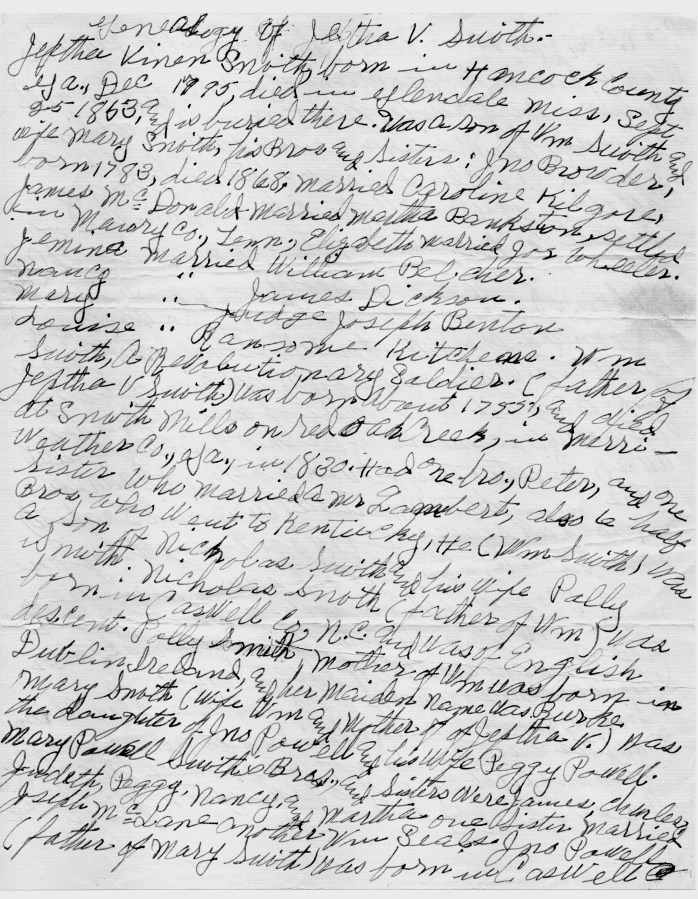 Genealogy of Jeptha V. Smith.-
Jeptha Vinen Smith, born in Hancock County
Ga., Dec 1795, died in Glendale Miss, Sept
25 1863, and is buried there. Was a son of Wm Smith and
wife Mary Smith, his Bros and Sisters: Jno Browder,
born 1783, died 1868, married Caroline Kilgore,
James McDonald married Martha Bankston, settled
in Maury Co., Tenn., Elizabeth married Jos Wheeler.
Jemina married William Belcher.
Nancy " James Dickson.
Mary " Judge Joseph Benton
Louise " Ransome Kitchens. Wm
Smith, A Revolutionary Soldier. (father of
Jeptha V Smith) was born about 1755, and died
at Smith Mills on red Oak Creek, in Merri-
Weather Co., Ga., in 1830. Had one bro., Peter, and one
Sister who married a Mr Lambert, also 6 half
Bros. who went to Kentucky, He (Wm Smith) was
a son of Nicholas Smith and his wife Polly
Smith. Nicholas Smith (father of Wm) was
born in Caswell Co, N.C. and was of English
descent. Polly Smith, mother of Wm was born in
Dublin Ireland, and her maiden name was Burke
Mary Smith (wife Wm and Mother of Jeptha V.) was
the daughter of Jno Powell and his wife Peggy Powell.
Mary Powell Smith Bros. and Sisters were James, Charley
Judeth, Peggy, Nancy, and Martha one sister married
Joseph McLane another Wm Seals Jno Powell
(father of Mary Smith) was born in Caswell Co